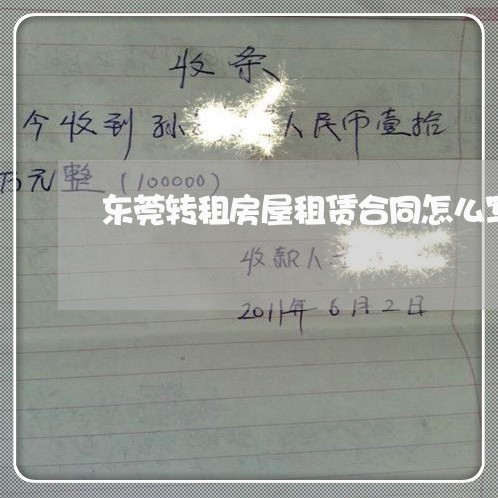 收条
今收到孙 人民币壹拾
万元整(100000)
东莞转租房屋租赁合同怎么
收款人
2011年6月2日